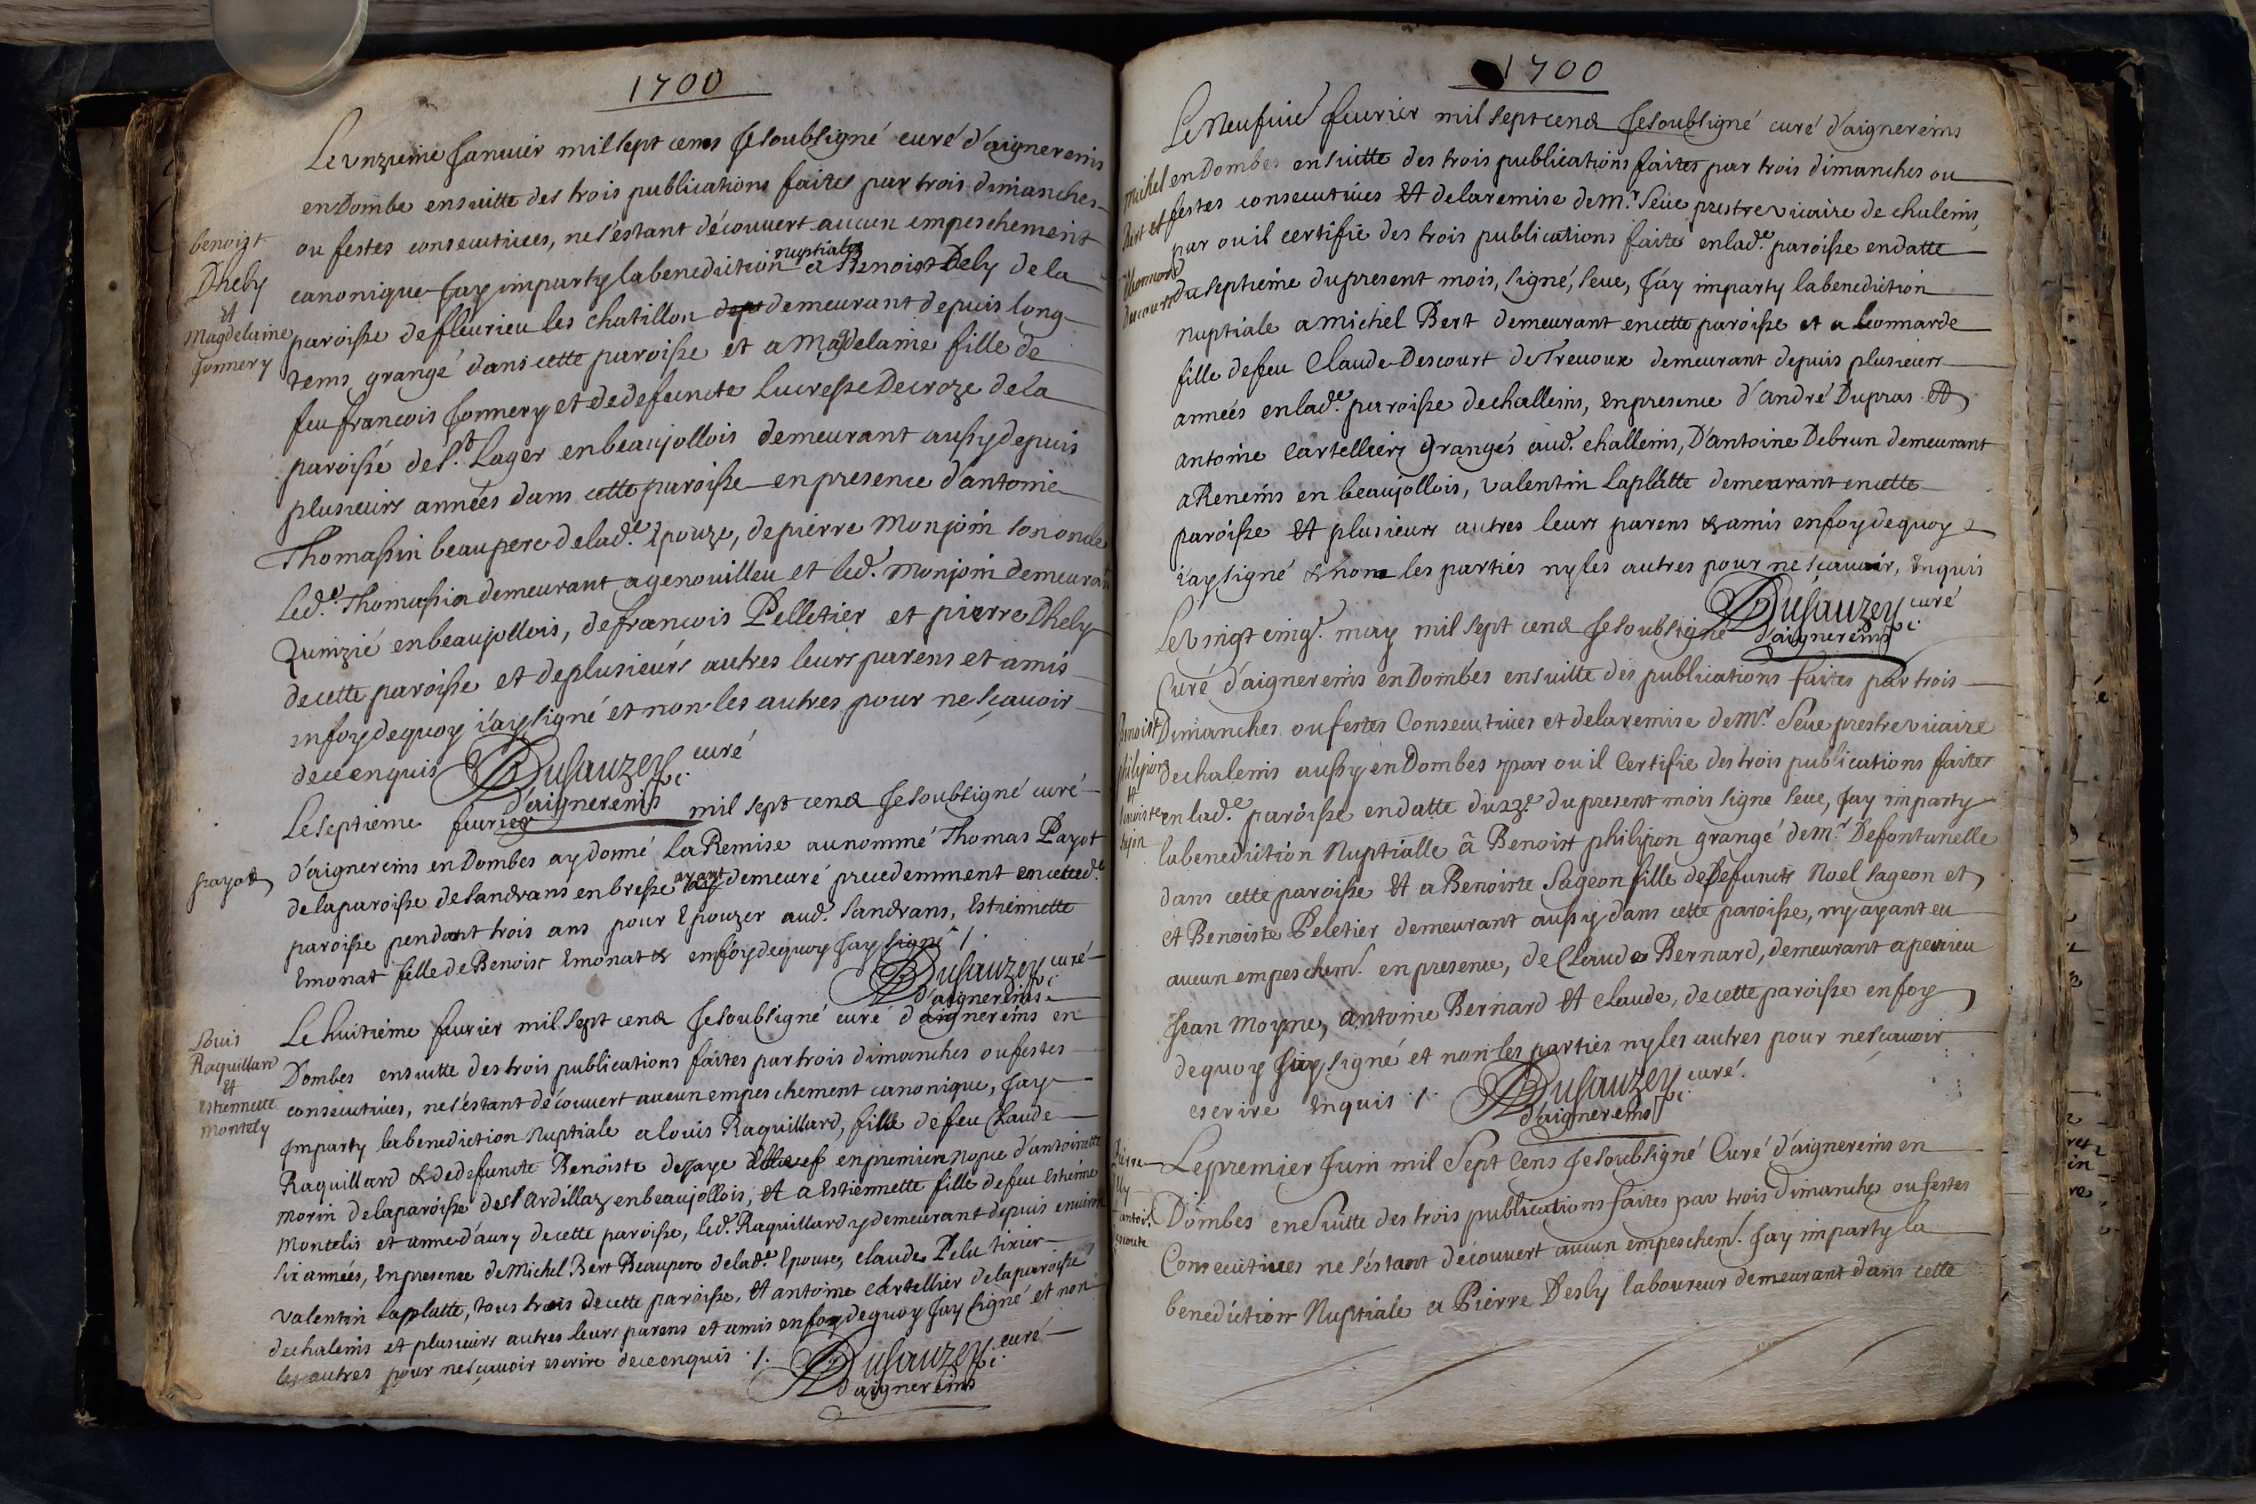 1700
Le unzieme Januier mil sept cens Je soubsigné curé d'aignereins
en Dombe en suitte des trois publications faites par trois dimanches
ou festes consecutiues, ne s'éstant découvert aucun empeschement
benoist
Dhely
et
Magdelaine
Jonnery
canonique Jay imparty la benediction nuptiale a Benoist Dely de la
paroisse de fleurieu les chatillon demeurant depuis long
tems grangé dans cette paroisse et a Magdelaine fille de
feu francois Jonnery et de defuncte Lucresse Decroze de la
paroisse de st. Lager en beaujollois demeurant aussy depuis
plusieurs années dans cette paroisse en presence d'antoine
Thomassin beaupere de lad.e Epouze, de pierre Monjoin son oncle
led.t Thomassin demeurant a genouilleu et led. Monjoin demeurant
Quinzié en beaujollois, de francois Pelletier et pierre Dhely
de cette paroisse et de plusieurs autres leurs parens et amis
en foy de quoy i'ay signé et non les autres pour ne sçauoir
de ce enquis Dusauzey curé
d'aignereins
Le septieme feurier mil sept cens Je soubsigné curé
payot
d'aignereins en Dombes ay donné la Remise au nommé Thomas Payot
de la paroisse de sandrans en bresse ayant demeuré precedemment en cette d.e
paroisse pendant trois ans pour Epouzer aud. sandrans, Estiennette
Emonat fille de Benoist Emonat & en foy de quoy Jay signé /.
Dusauzey curé
d'aignereins
Louis
Raquillard
et
Estiennette
Montely
Le huitieme feurier mil sept cens Je soubsigné curé d'aignereins en
Dombes en suitte des trois publications faites par trois dimanches ou festes
consecutiues, ne s'éstant découvert aucun empeschement canonique, Jay
Imparty la benediction Nuptiale a louis Raquillard, fils de feu Claude
Raquillard & de defuncte Benoiste dejaye en premier nopce d'antoinette
Morin de la paroisse de st Ardillaz en beaujollois, et a Estiennette fille de feu Estienne
Montelis et anne d'aury de cette paroisse, led. Raquillard y demeurant depuis enuiron
six années, En presence de Michel Bert Beaupere de lad.e Epouse, Claude Pelu tixier
valentin Laplatte, tous trois de cette paroisse, et antoine Cartellier de la paroisse
de chaleins et plusieurs autres leurs parens et amis en foy de quoy Jay signé et non
les autres pour ne sçauoir escrire de ce enquis ./.
Dusauzey curé
d'aignereins
1700
Le Neufuie feurier mil sept cens Je soubsigné curé d'aignereins
michel
Bert et
en Dombes en suitte des trois publications faites par trois dimanches ou
festes consecutiues et de la remise de m.r Seue prestre vicaire de chaleins,
par ou il certifie des trois publications faites en lad.e paroisse en datte
du septieme du present mois, signé, seue, Jáy imparty la benediction
nuptiale a michel Bert demeurant en cette paroisse et a Leonnarde
fille de feu Claude Descourt de Treuoux demeurant depuis plusieurs
années en lad.e paroisse de challeins, en presence d'andré Dupras et
antoine Cartelliers grangés aud. challeins, D'antoine Debrun demeurant
a Reneins en beaujollois, Valentin Laplatte demeurant en cette
paroisse et plusieurs autres leurs parens & amis en foy de quoy
i'ay signé & non les parties ny les autres pour ne sçauoir, enquis
Dusauzey curé
d'aignereins
Le vingt cinq.e may mil sept cens Je soubsigné
Curé d'aignereins en Dombes en suitte des publications faites par trois
Dimanches ou festes Consecutiues et de la remise de M.r Seue prestre vicaire
de chaleins aussy en Dombes par ou il Certifie des trois publications faites
en lad.e paroisse en datte du 23.e du present mois signe seue, Jay imparty
la benediction Nuptialle a Benoist philipon grangé de m.r Defontanelle
dans cette paroisse et a Benoiste Sageon fille de Defuncts Noel sageon et
et Benoiste Peletier demeurant aussy dans cette paroisse, ny ayant eu
aucun empeschem.t en presence, de Claude Bernard, demeurant a perrieu
Jean Moyne, antoine Bernard et Claude, de cette paroisse en foy
de quoy Jay signé et non les parties ny les autres pour ne sçauoir
escrire Enquis ./.
Dusauzey curé
d'aignereins
Le premier Juin mil Sept Cens Je soubsigné Curé d'aignereins en
Dombes en Suitte des trois publications faites par trois Dimanches ou festes
Consecutiues ne s'éstant découvert aucun empeschem.t Jay imparty la
benediction Nuptiale a Pierre Desly laboureur demeurant dans cette